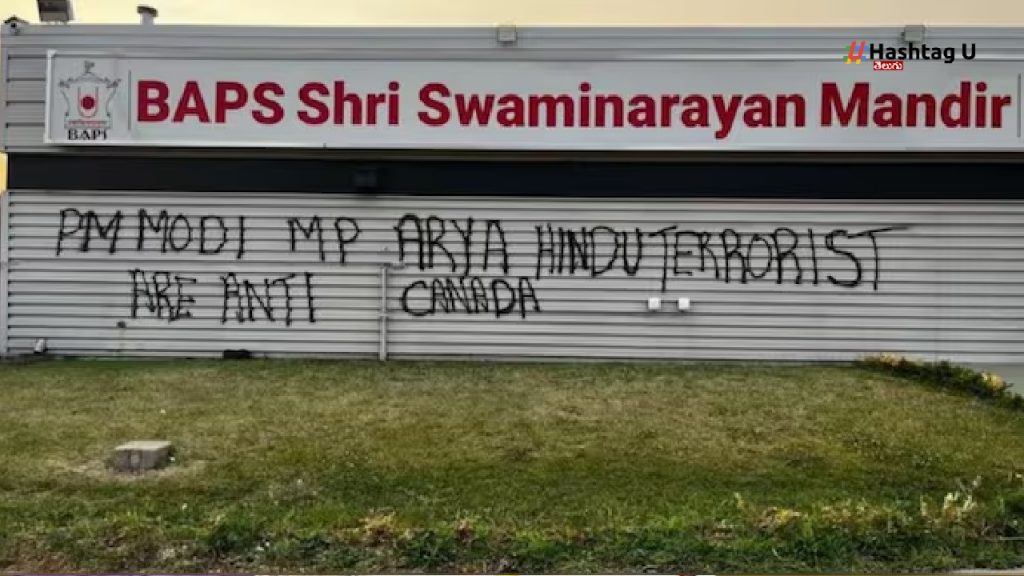 Hashtag U
తెలుగు
BAPS Shri Swaminarayan Mandir
BAPS
PM MODI MP ARYA HINDU TERRORIST
ARE ANTI CANADA